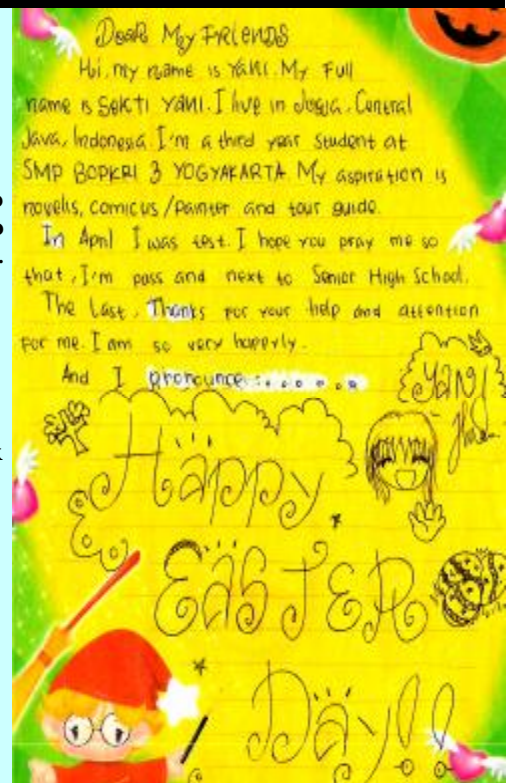 Dear My Friends
Hi, my name is Yani. My Full
name is Sekti Yani. I live in Jogja, Central
Java, Indonesia. I'm a third year student at
SMP BOPKRI 3 YOGYAKARTA. My aspiration is
novelis, comicus/painter and tour guide.
In April I was test. I hope you pray me so
that, I'm pass and next to Senior High School.
The Last, Thanks for your help and attention
for me. I am so very happerly.
And I pronounce.........
YANI
Happy
EASTER
Day!!